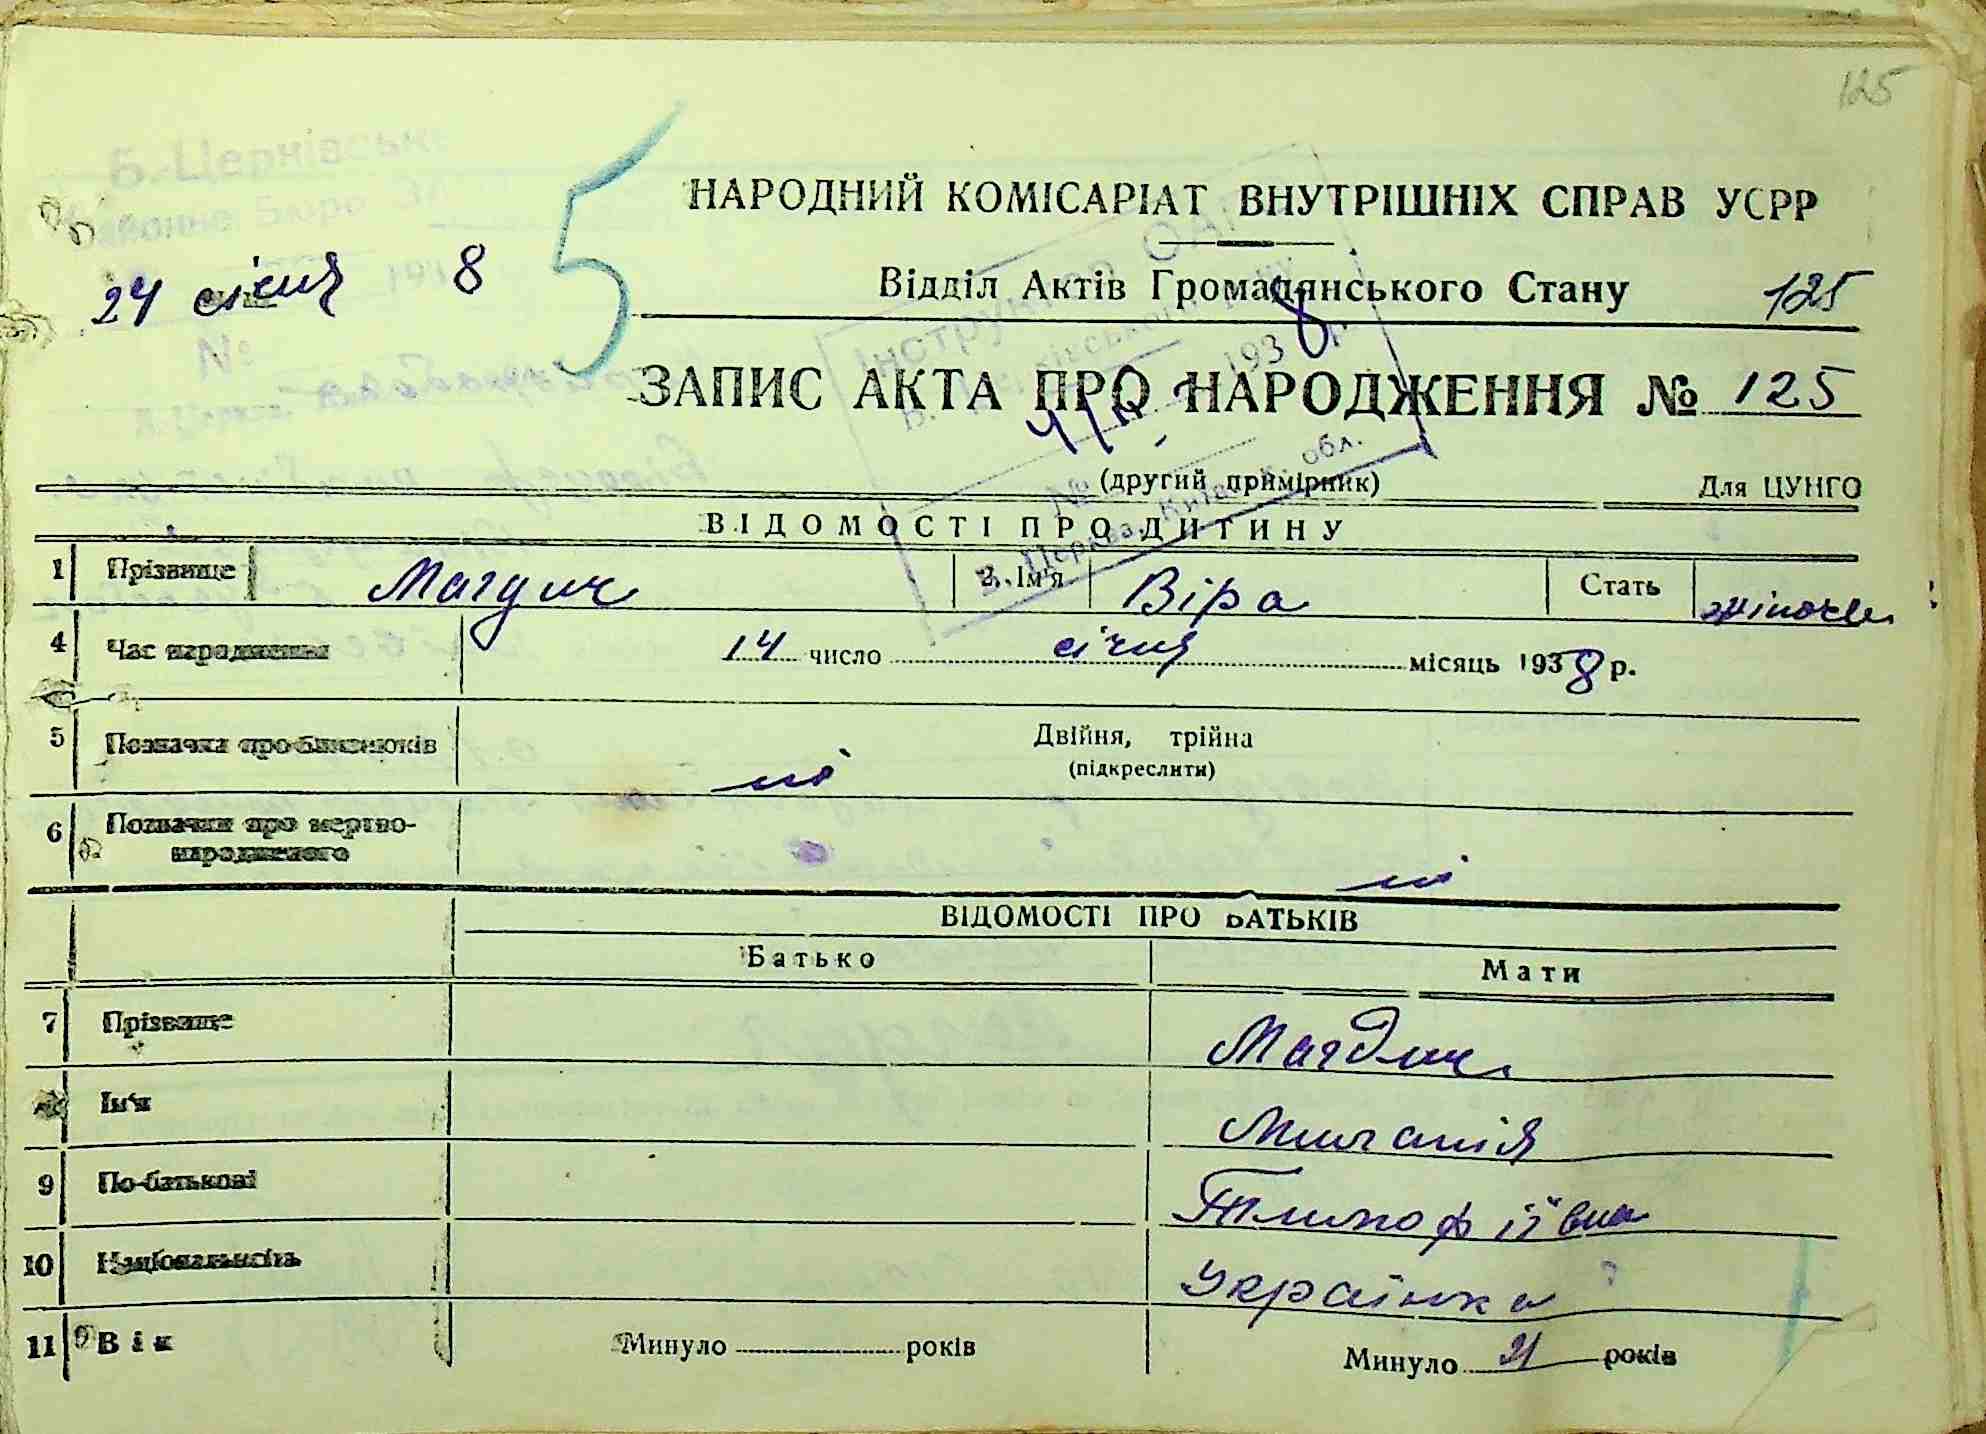 125
Б.-Церківське
Районне Бюро ЗАГС
НАРОДНИЙ КОМІСАРІАТ ВНУТРІШНІХ СПРАВ УСРР
24 січня 8
5
Відділ Актів Громадянського Стану 125
ЗАПИС АКТА ПРО НАРОДЖЕННЯ № 125
(другий примірник) Для ЦУНГО
Інструктор ОАГС
193 8 р
№
Б. Церква, Київськ. обл.
ВІДОМОСТІ ПРО ДИТИНУ
1 Прізвище Магдич 2. Ім'я Віра Стать жіноча
4 Час народження 14 число січня місяць 1938 р.
5 Позначка про близнюків Двійня, трійна
(підкреслити)
ні
6 Позначки про мертво-
народженого
ні
ВІДОМОСТІ ПРО БАТЬКІВ
Батько Мати
7 Прізвище Магдич
Ім'я
9 По-батькові Тимофіївна
10 Національність Українка
11 Вік Минуло років Минуло 21 років